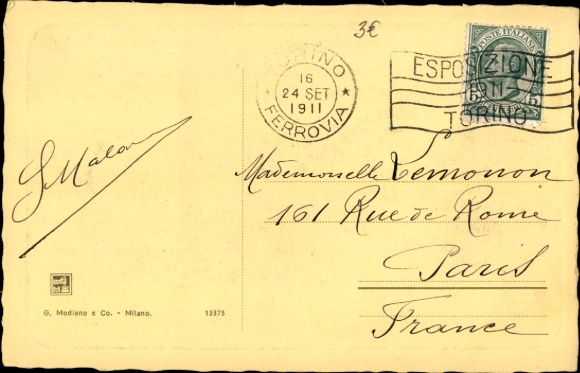 3€
TORINO
16
24 SET
1911
FERROVIA
POSTE ITALIANE
ESPOSIZIONE
1911
TORINO
5 5
Mademoiselle Lemonon
161 Rue de Rome
Paris
France
G. Modiano e Co. - Milano.
13375